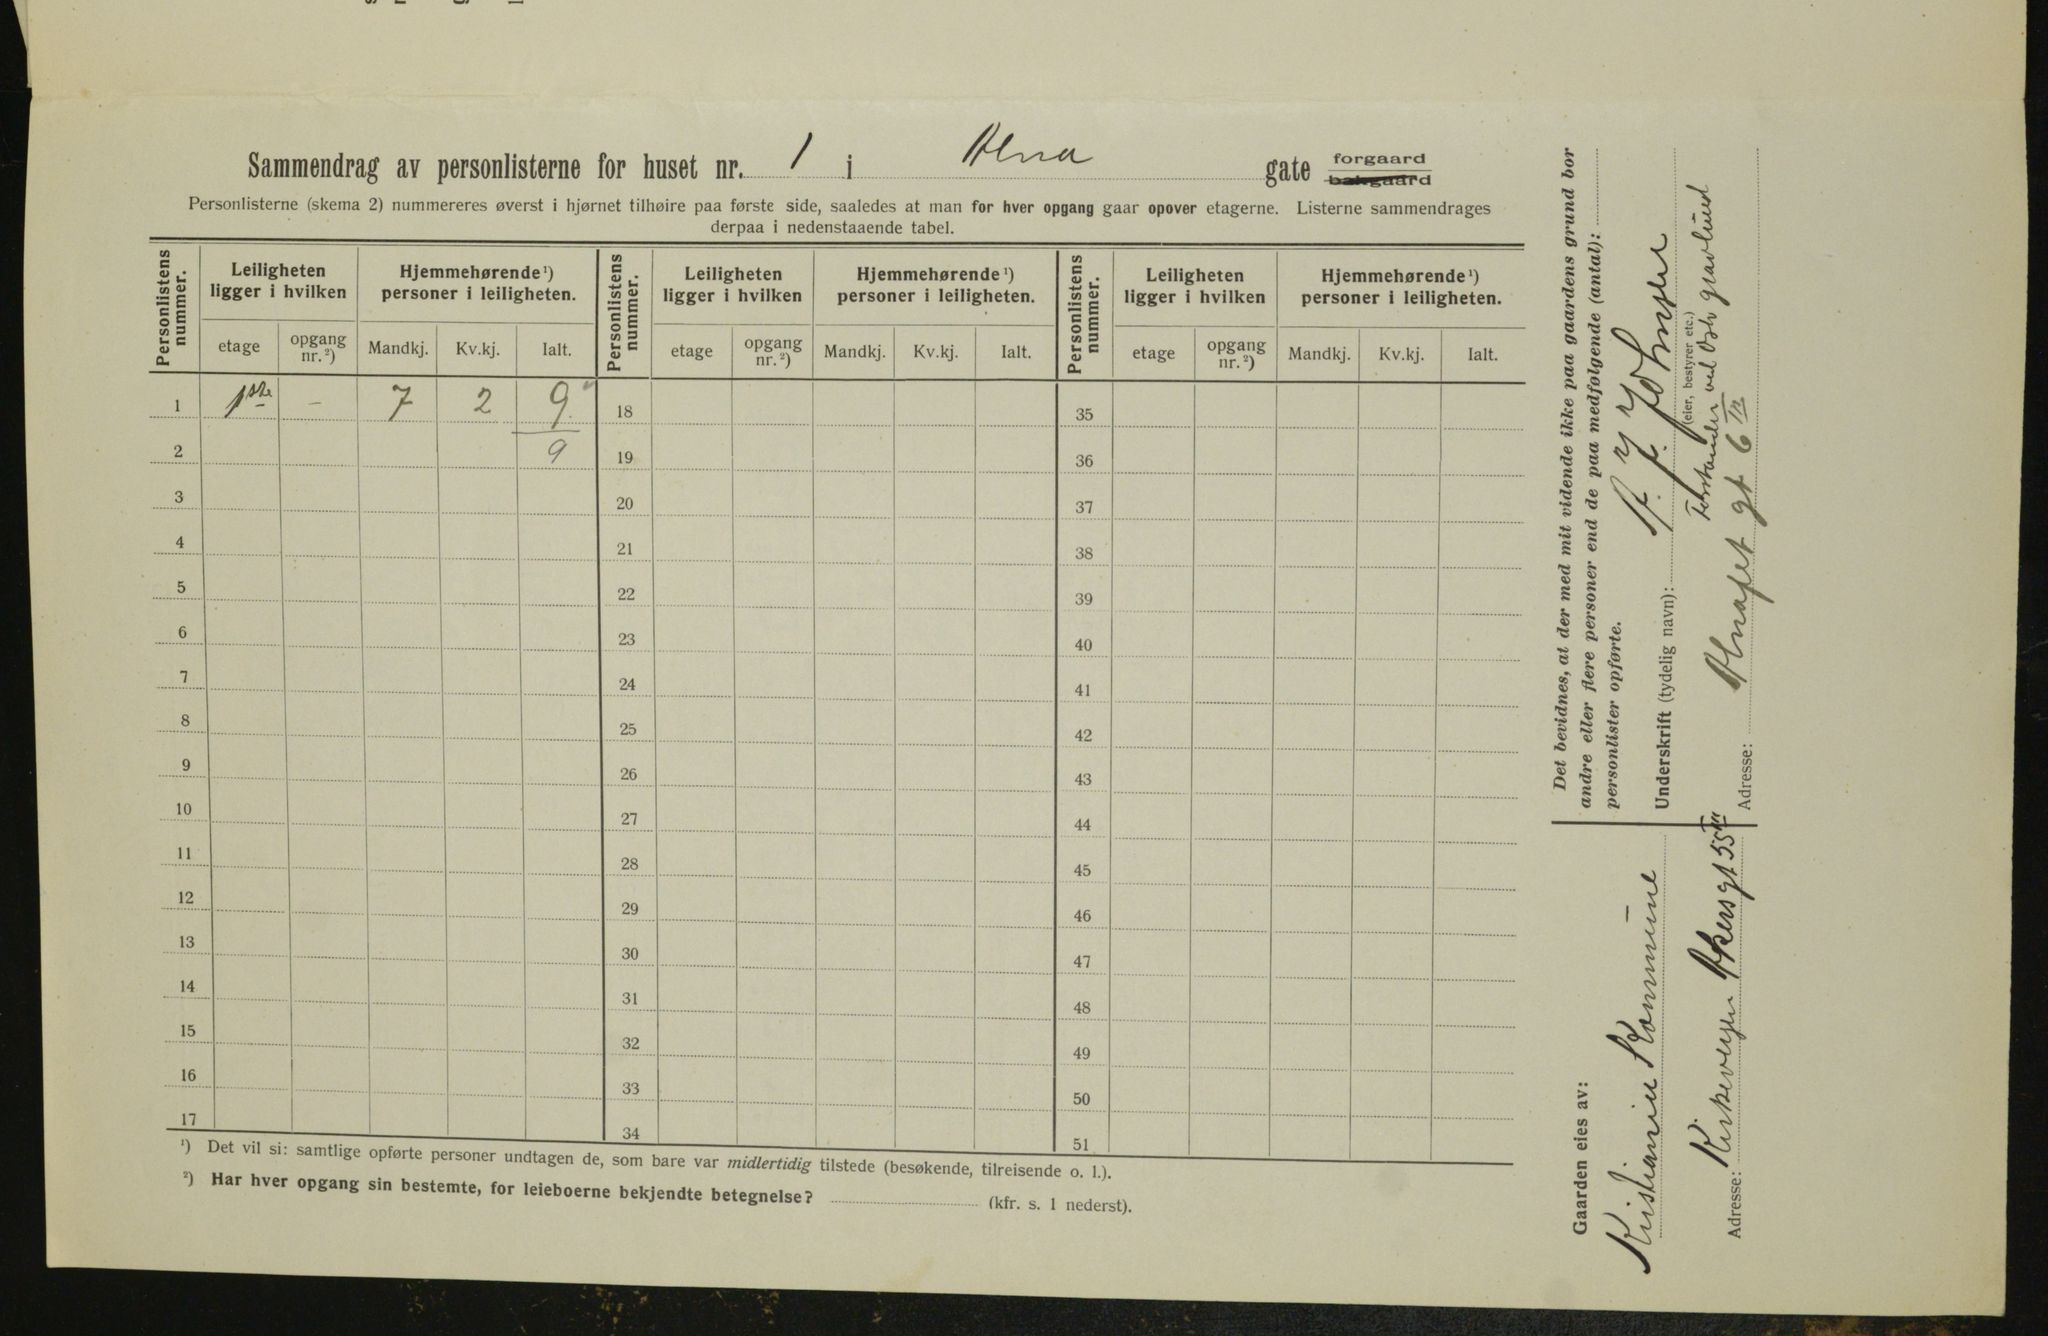 Sammendrag av personlisterne for huset nr. 1 i Alna gate forgaard
bakgaard
Personlisterne (skema 2) nummereres øverst i hjørnet tilhøire paa første side, saaledes at man for hver opgang gaar opover etagerne. Listerne sammendrages
derpaa i nedenstaaende tabel.
Personlistens nummer. Leiligheten ligger i hvilken Hjemmehørende ¹) personer i leiligheten. Personlistens nummer. Leiligheten ligger i hvilken Hjemmehørende ¹) personer i leiligheten. Personlistens nummer. Leiligheten ligger i hvilken Hjemmehørende ¹) personer i leiligheten.
etage opgang nr. ²) Mandkj. Kv.kj. Ialt. etage opgang nr. ²) Mandkj. Kv.kj. Ialt. etage opgang nr. ²) Mandkj. Kv.kj. Ialt.
1 1ste – 7 2 9 18 35
2 9 19 36
3 20 37
4 21 38
5 22 39
6 23 40
7 24 41
8 25 42
9 26 43
10 27 44
11 28 45
12 29 46
13 30 47
14 31 48
15 32 49
16 33 50
17 34 51
¹) Det vil si: samtlige opførte personer undtagen de, som bare var midlertidig tilstede (besøkende, tilreisende o. l.).
²) Har hver opgang sin bestemte, for leieboerne bekjendte betegnelse? (kfr. s. 1 nederst).
Det bevidnes, at der med mit vidende ikke paa gaardens grund bor
andre eller flere personer end de paa medfølgende (antal):
personlister opførte.
Underskrift (tydelig navn):
(eier, bestyrer etc.)
Forstander ved Oslo gravlund
Adresse: Alnafet gt 6 IV
Gaarden eies av:
Kristiania Kommune
Adresse: Kirkevergen Akersgt 55 III